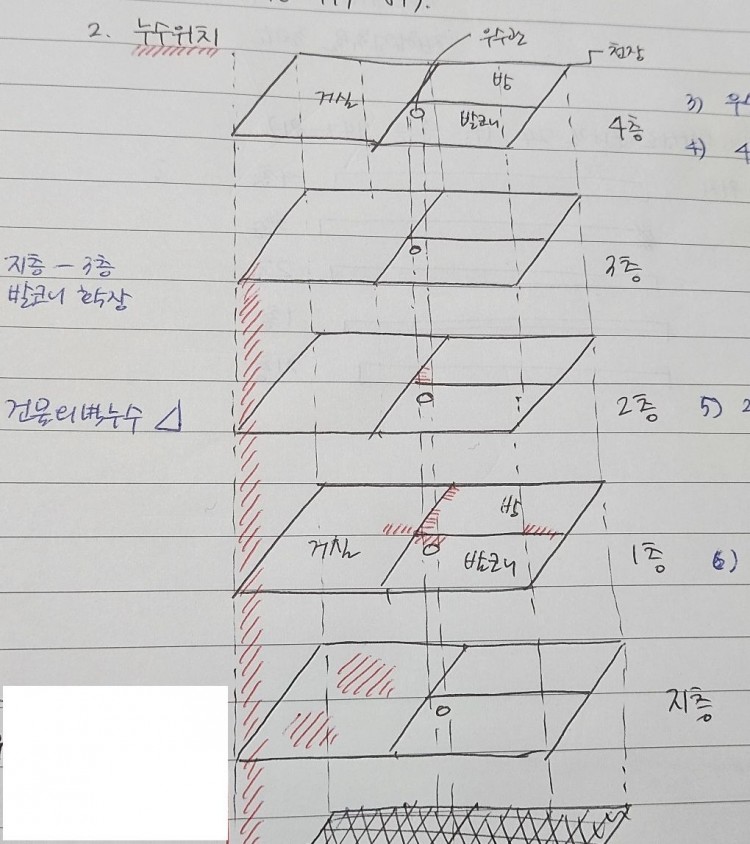 2. 누수위치
우수관
천장
거실
방
발코니
4층
3)
4) 4
지층 - 3층
발코니 확장
3층
건물외벽누수
2층
5) 2
방
거실
발코니
1층
6)
지층